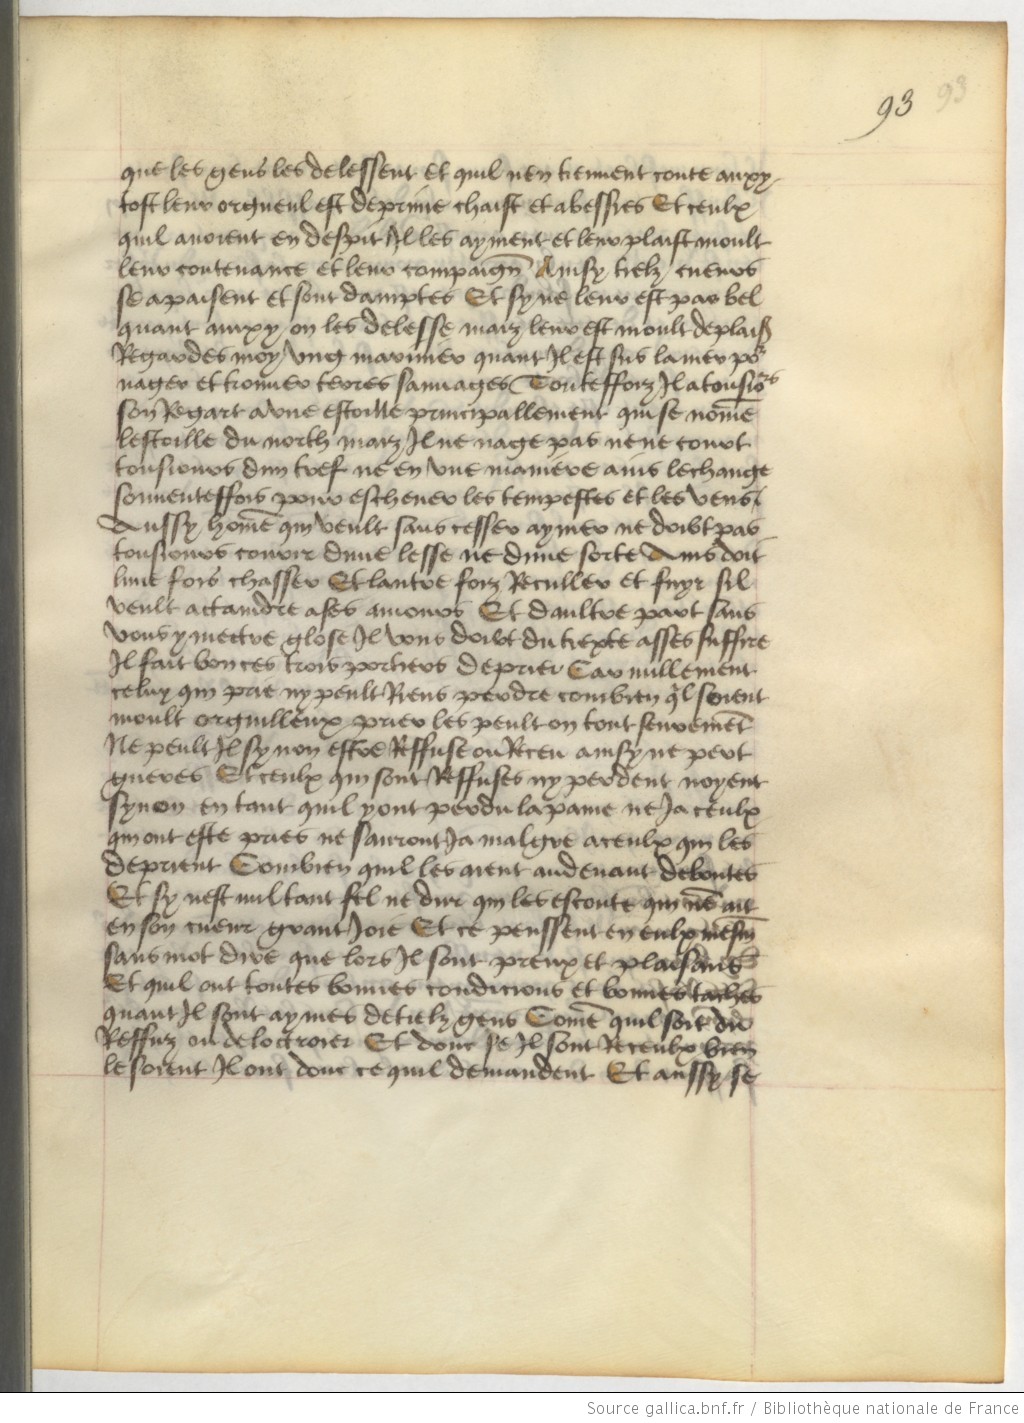 93 93
que les gens les delessent et quil nen tiennent conte auxy
tost leur orgueul est deprime chaist et abessies Et ceulx
quil auoient en despit Il les ayment et leur plaist moult
leur contenance et leur compaign̄ Ainsy tielz cueurs
se apaisent et sont damptes Et sy ne leur est pas bel
quant auxy on les delesse maiz leur est moult deplais
Regardes moy vng marinier quant Il est sus la mer por
nager et trouuer terres sauuages Toutesforz Il a tousiors
son Regart a vne estoille principallement qui se nōme
lestoille du north maiz Il ne nage pas ne ne court
tousiours dun tref ne en vne maniere ains le change
souuenteffois pour escheuer les tempestes et les vens
Aussy hōme qui veult sans cesser aymer ne doibt pas
tousiours courir dune lesse ne dune sorte Ains doit
lune fois chasser Et lautre forz Reculler et fuyr sil
veult actaindre a ses amours Et daultre part sans
vous y mectre glose Il vous doibt du texte asses suffire
Il fait bon ces trois portiers deprier Car nullement
celuy qui prie ny peult Riens perdre combien ql soient
moult orguilleux prier les peult on tout seuremēt
Ne peult Il sy non estre Reffuse ou Receu ainsy ne pert
gueres Et ceulx qui sont Reffuses ny perdent noyent
synon en tant quil y ont perdu la paine ne Ja ceulx
qui ont este pries ne sauront Ja malgre a ceulx qui les
deprient Combien quil les aient audeuant deboutes
Et sy nest nul tant fel ne dur qui les escoute qui nē ait
en son cueur grant Joie Et ce penssent en eulx mesm̄
sans mot dire que lors Il sont preux et plaisans
Et quil ont toutes bonnes condicions et bonnes taches
quant Il sont aymes de tielz gens Cōme quil soit du
Reffuz ou de loctroier Et donc se Il sont Receulx bien
le soient Il ont donc ce quil demandent Et aussy se
Source gallica.bnf.fr / Bibliothèque nationale de France